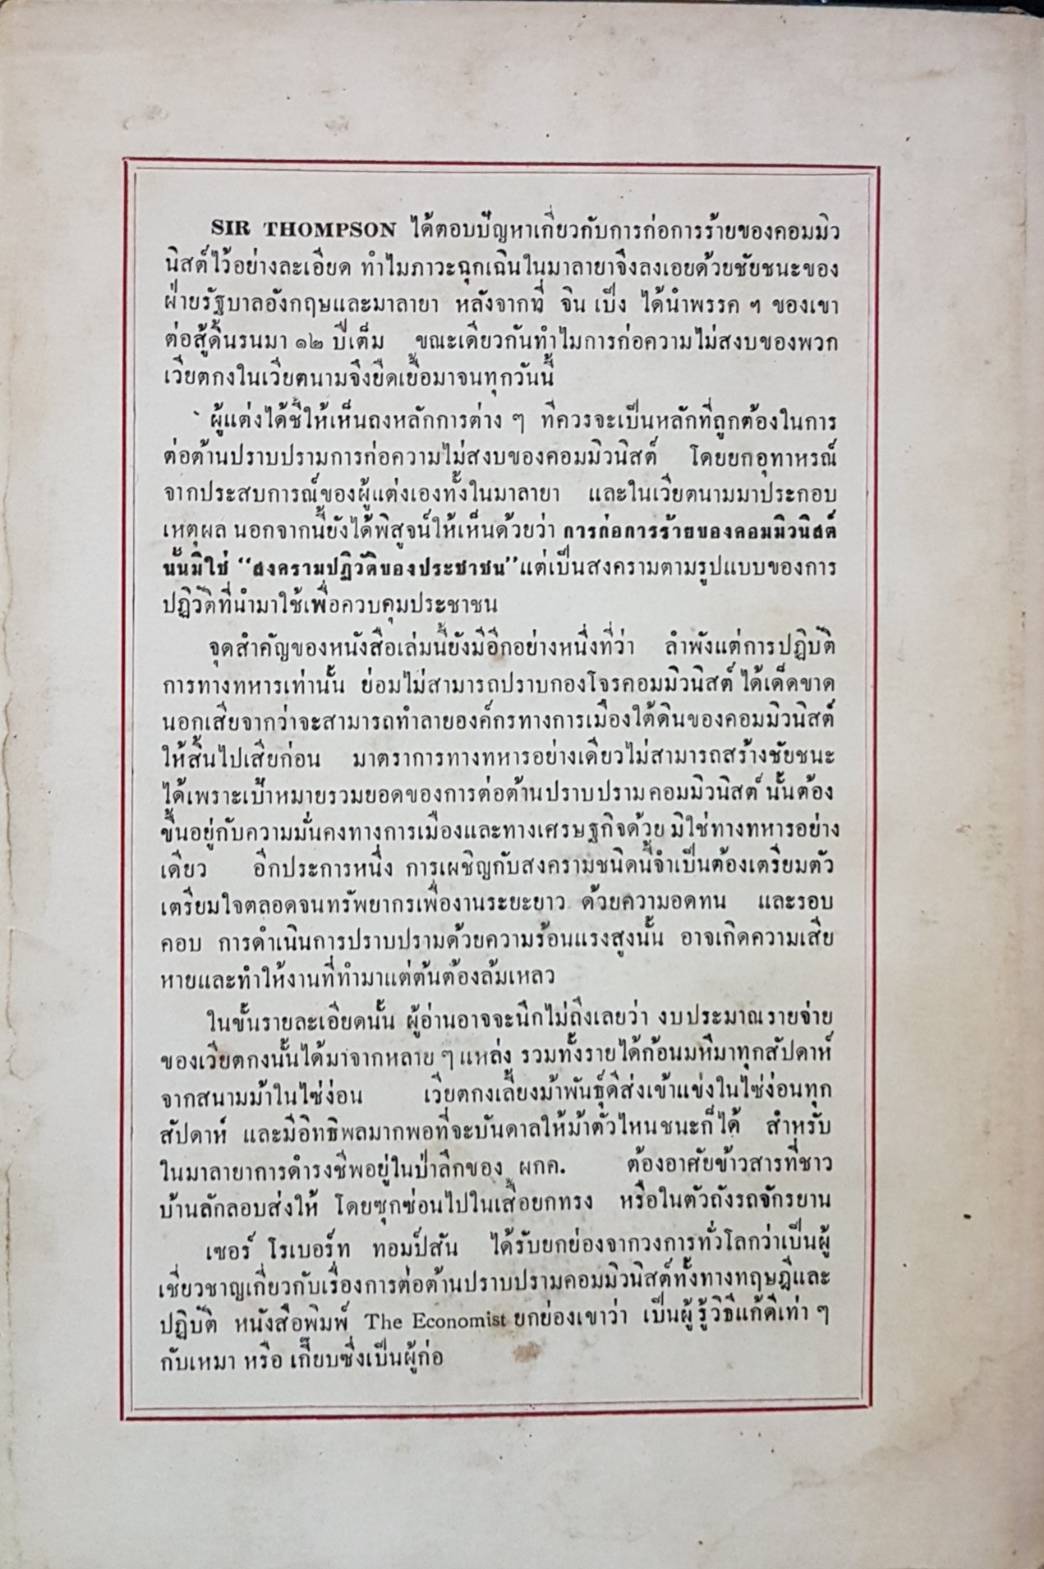 SIR THOMPSON ได้ตอบปัญหาเกี่ยวกับการก่อการร้ายของคอมมิว
นิสต์ไว้อย่างละเอียด ทำไมภาวะฉุกเฉินในมาลายาจึงลงเอยด้วยชัยชนะของ
ฝ่ายรัฐบาลอังกฤษและมาลายา หลังจากที่ จิน เป็ง ได้นำพรรค ฯ ของเขา
ต่อสู้ดิ้นรนมา ๑๒ ปีเต็ม ขณะเดียวกันทำไมการก่อความไม่สงบของพวก
เวียตกงในเวียตนามจึงยืดเยื้อมาจนทุกวันนี้
ผู้แต่งได้ชี้ให้เห็นถึงหลักการต่าง ๆ ที่ควรจะเป็นหลักที่ถูกต้องในการ
ต่อต้านปราบปรามการก่อความไม่สงบของคอมมิวนิสต์ โดยยกอุทาหรณ์
จากประสบการณ์ของผู้แต่งเองทั้งในมาลายา และในเวียตนามมาประกอบ
เหตุผล นอกจากนี้ยังได้พิสูจน์ให้เห็นด้วยว่า การก่อการร้ายของคอมมิวนิสต์
นั้นมิใช่ "สงครามปฏิวัติของประชาชน" แต่เป็นสงครามตามรูปแบบของการ
ปฏิวัติที่นำมาใช้เพื่อควบคุมประชาชน
จุดสำคัญของหนังสือเล่มนี้ยังมีอีกอย่างหนึ่งที่ว่า ลำพังแต่การปฏิบัติ
การทางทหารเท่านั้น ย่อมไม่สามารถปราบกองโจรคอมมิวนิสต์ ได้เด็ดขาด
นอกเสียจากว่าจะสามารถทำลายองค์กรทางการเมืองใต้ดินของคอมมิวนิสต์
ให้สิ้นไปเสียก่อน มาตราการทางทหารอย่างเดียวไม่สามารถสร้างชัยชนะ
ได้เพราะเป้าหมายรวมยอดของการต่อต้านปราบปราม คอมมิวนิสต์ นั้นต้อง
ขึ้นอยู่กับความมั่นคงทางการเมืองและทางเศรษฐกิจด้วย มิใช่ทางทหารอย่าง
เดียว อีกประการหนึ่ง การเผชิญกับสงครามชนิดนี้จำเป็นต้องเตรียมตัว
เตรียมใจตลอดจนทรัพยากรเพื่องานระยะยาว ด้วยความอดทน และรอบ
คอบ การดำเนินการปราบปรามด้วยความร้อนแรงสูงนั้น อาจเกิดความเสีย
หายและทำให้งานที่ทำมาแต่ต้นต้องล้มเหลว
ในขั้นรายละเอียดนั้น ผู้อ่านอาจจะนึกไม่ถึงเลยว่า งบประมาณรายจ่าย
ของเวียตกงนั้นได้มาจากหลาย ๆ แหล่ง รวมทั้งรายได้ก้อนมหึมาทุกสัปดาห์
จากสนามม้าในไซ่ง่อน เวียตกงเลี้ยงม้าพันธุ์ดีส่งเข้าแข่งในไซ่ง่อนทุก
สัปดาห์ และมีอิทธิพลมากพอที่จะบันดาลให้ม้าตัวไหนชนะก็ได้ สำหรับ
ในมาลายาการดำรงชีพอยู่ในป่าลึกของ ผกค. ต้องอาศัยข้าวสารที่ชาว
บ้านลักลอบส่งให้ โดยซุกซ่อนไปในเสื้อยกทรง หรือในตัวถังรถจักรยาน
เซอร์ โรเบอร์ท ทอมป์สัน ได้รับยกย่องจากวงการทั่วโลกว่าเป็นผู้
เชี่ยวชาญเกี่ยวกับเรื่องการต่อต้านปราบปรามคอมมิวนิสต์ทั้งทางทฤษฎีและ
ปฏิบัติ หนังสือพิมพ์ The Economist ยกย่องเขาว่า เป็นผู้รู้วิธีแก้ดีเท่า ๆ
กับเหมา หรือ เกี๊ยบซึ่งเป็นผู้ก่อ